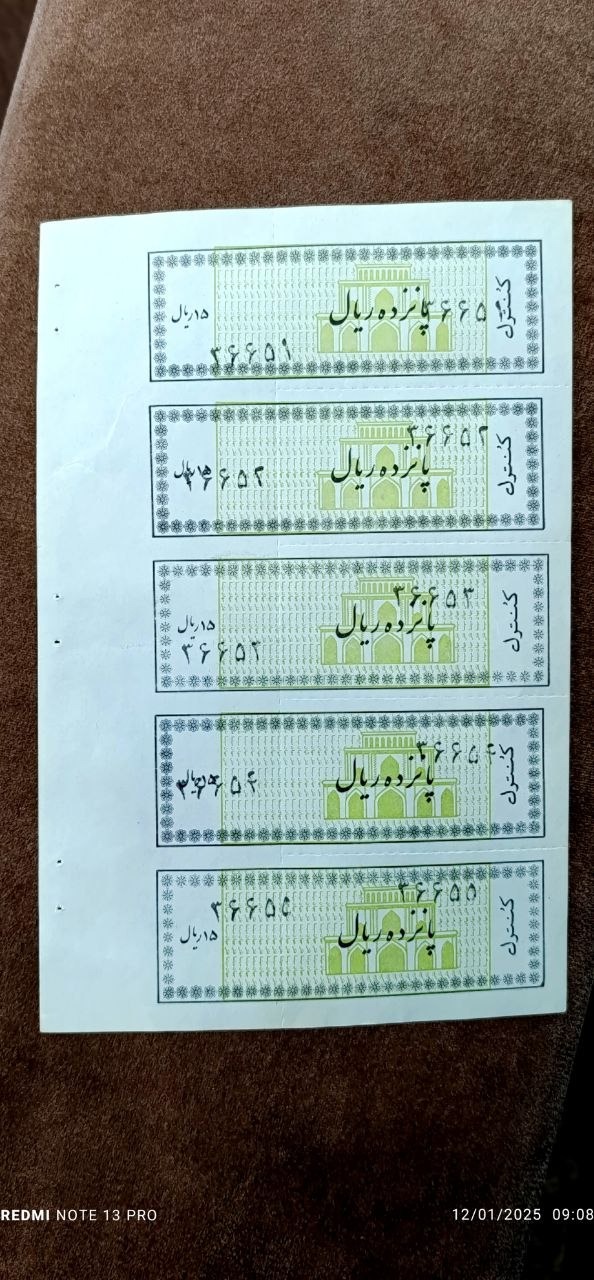 ۱۵ ریال
پانزده ریال
کنترل
۳۶۶۵
۳۶۶۵۱
۳۶۶۵۲
پانزده ریال
کنترل
۱۵ ریال
۳۶۶۵۲
۳۶۶۵۳
پانزده ریال
کنترل
۱۵ ریال
۳۶۶۵۳
۳۶۶۵۴
پانزده ریال
کنترل
۳۶۶۵۴
۳۶۶۵۵
۳۶۶۵۵
پانزده ریال
کنترل
۱۵ ریال
REDMI NOTE 13 PRO
12/01/2025 09:08